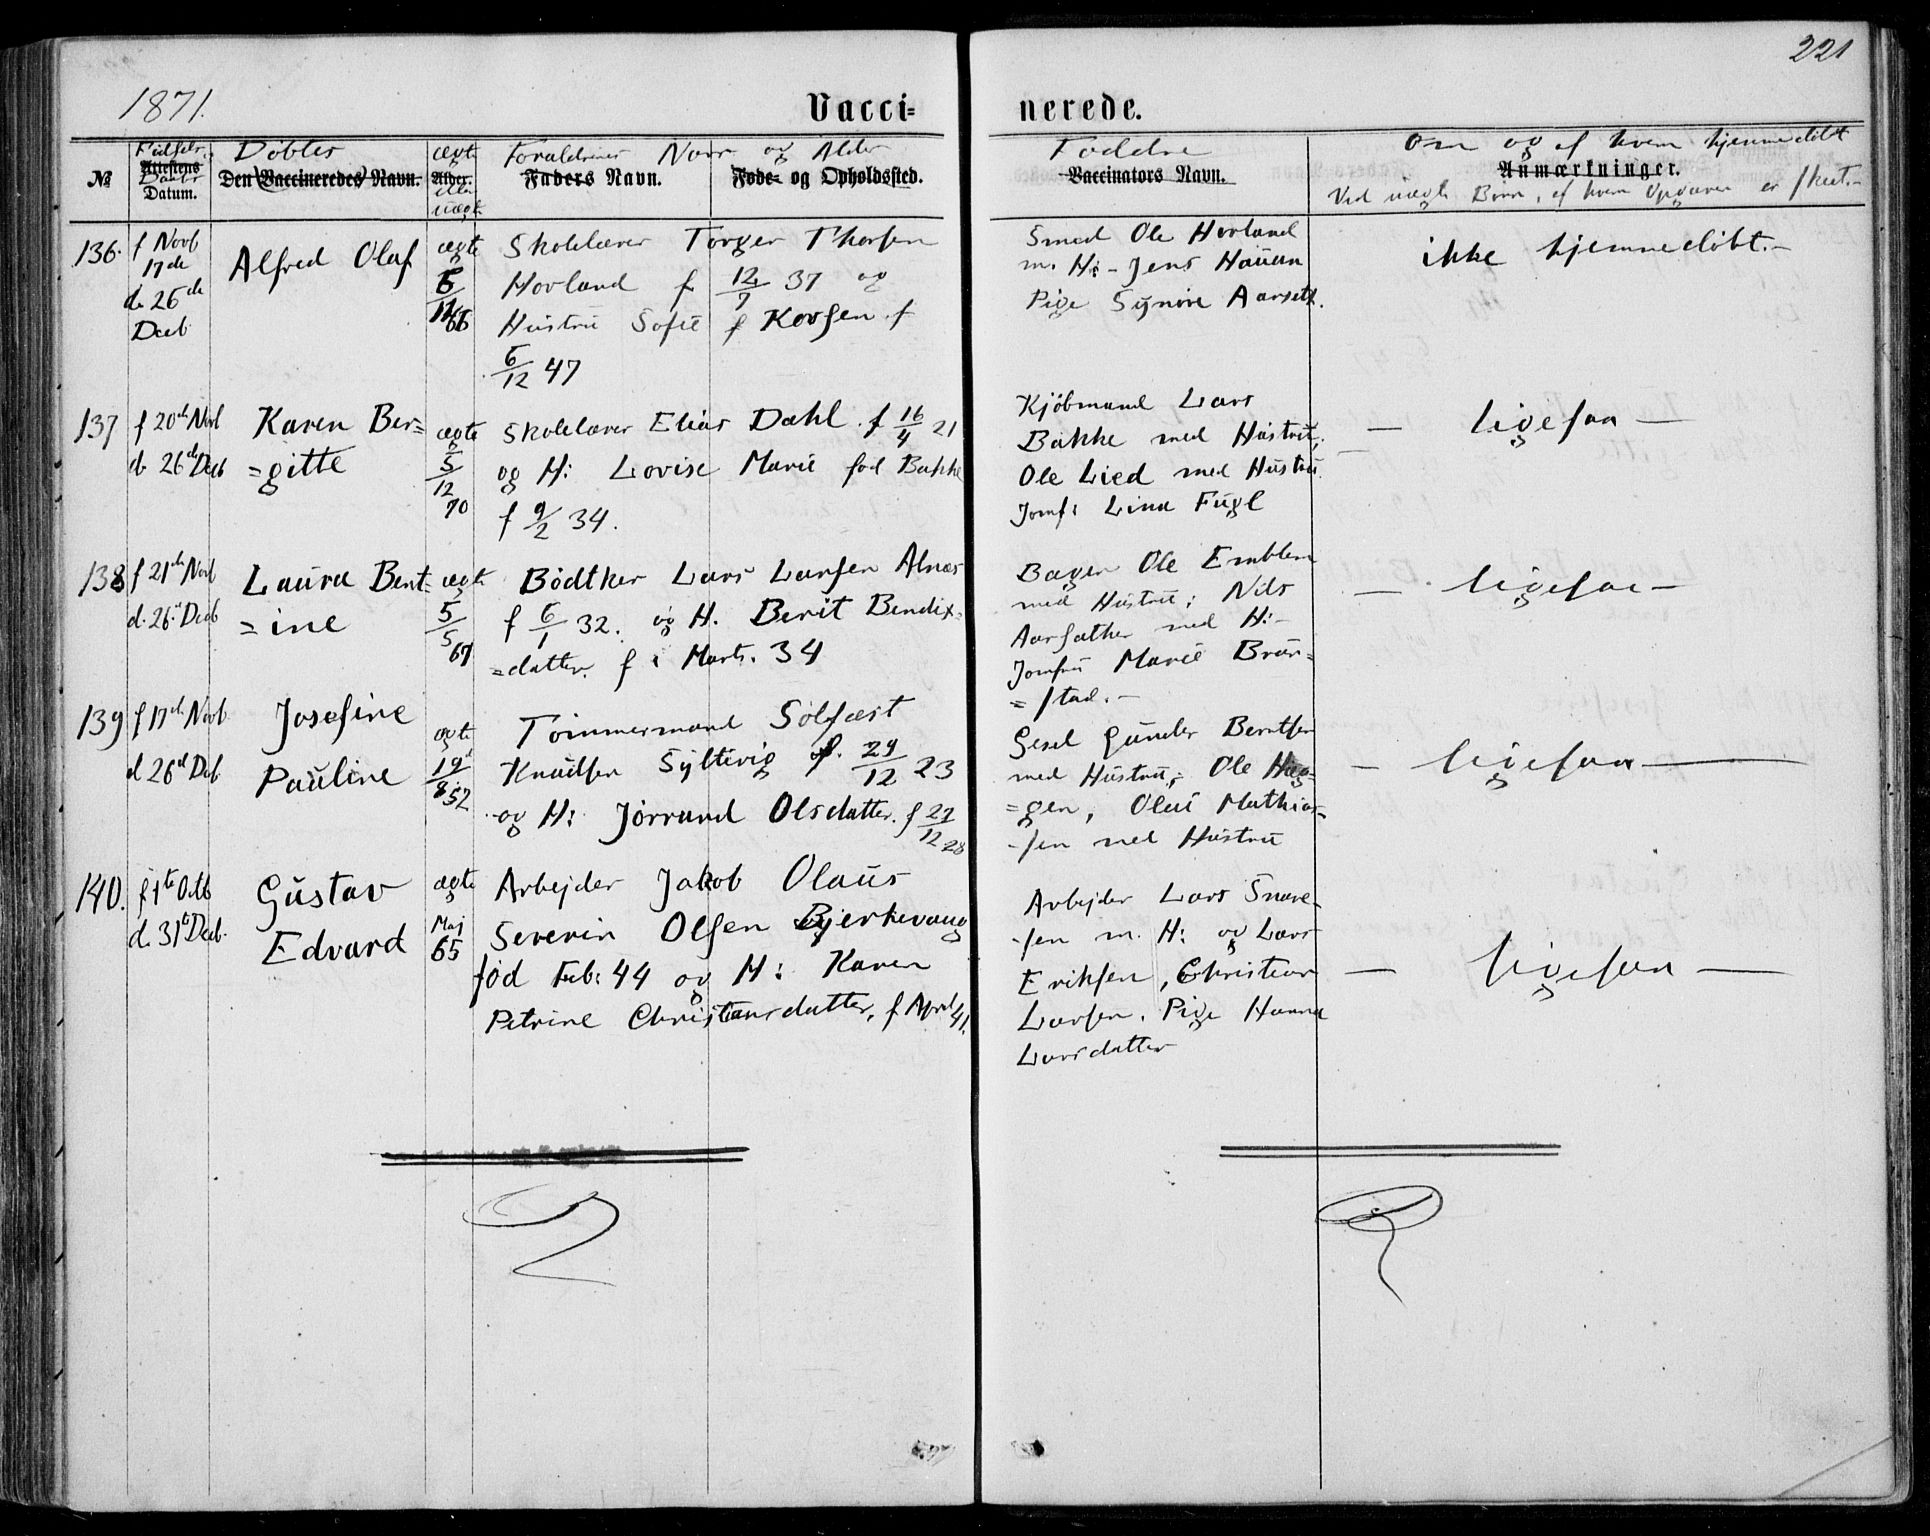 221
1871.
Vacci=
nerede.
Fødsels
Døbtes
ægte
Forældrenes Navn og Alder
Faddre
Om og af hvem hjemmedøbt
№
Attestens
Daabs
Datum.
Den Vaccineredes Navn.
Alder.
uægte
Faders Navn.
Føde- og Opholdssted.
Vaccinators Navn.
Anmærkninger.
Ved uægte Børn, af hvem Opgaven er skeet.-
136.
f Novb
17de
d. 26de
Decb
Alfred Olaf
ægte
6/11
66
Skolelærer Torger Thorsen
Hovland f 12/7 37 og
Hustru Sofie f Korsen f
6/12 47
Smed Ole Hovland
m. H: - Jens Hauan
Pige Synøve Aarseth.
ikke hjemmedøbt.-
137
f 20de Novb
d. 26de Decb
Karen Ber=
=gitte
ægte
5/12
70
Skolelærer Elias Dahl. f 16/4 21
og H: Lovise Marie fød Bakke
f 9/2 34.
Kjøbmand Lars
Bakke med Hustru,
Ole Lied med Hustru
Jomf: Lina Fugl
- ligesaa -
138
f 21de Novb
d. 26de Decb
Laura Bent=
=ine
ægte
5/5
67
Bødtker Lars Larsen Alnæs
f 6/1 32. og H. Berit Bendix=
=datter. f i Marts. 34
Bager Ole Emblem
med Hustru; Nils
Aarsæther med H:-
Jomfru Marie Brar=
=stad.-
- ligesaa -
139
f 17de Novb
d 26de Deb
Josefine
Pauline
ægte
19/8
52
Tømmermand Solfæst
Knudsen Syltevig f. 29/12 23
og H: Jorrand Olsdatter. f 27/12 28
Gesel Gunder Berntsen
med Hustru; Ole Hag=
=gen, Olai Mathias=
-sen med Hustru
- ligesaa -
140.
f 1te Octb
d. 31te Decb.
Gustav
Edvard
ægte
Maj
65
Arbejder Jakob Olaus
Severin Olsen Bjerkevaag
fød Feb: 44 og H: Karen
Petrine Christiansdatter, f April 41.
Arbejder Lars Snare-
-sen m. H: og Lars
Eriksen, Christian
Larsen. Pige Hanna
Larsdatter
- ligesaa -